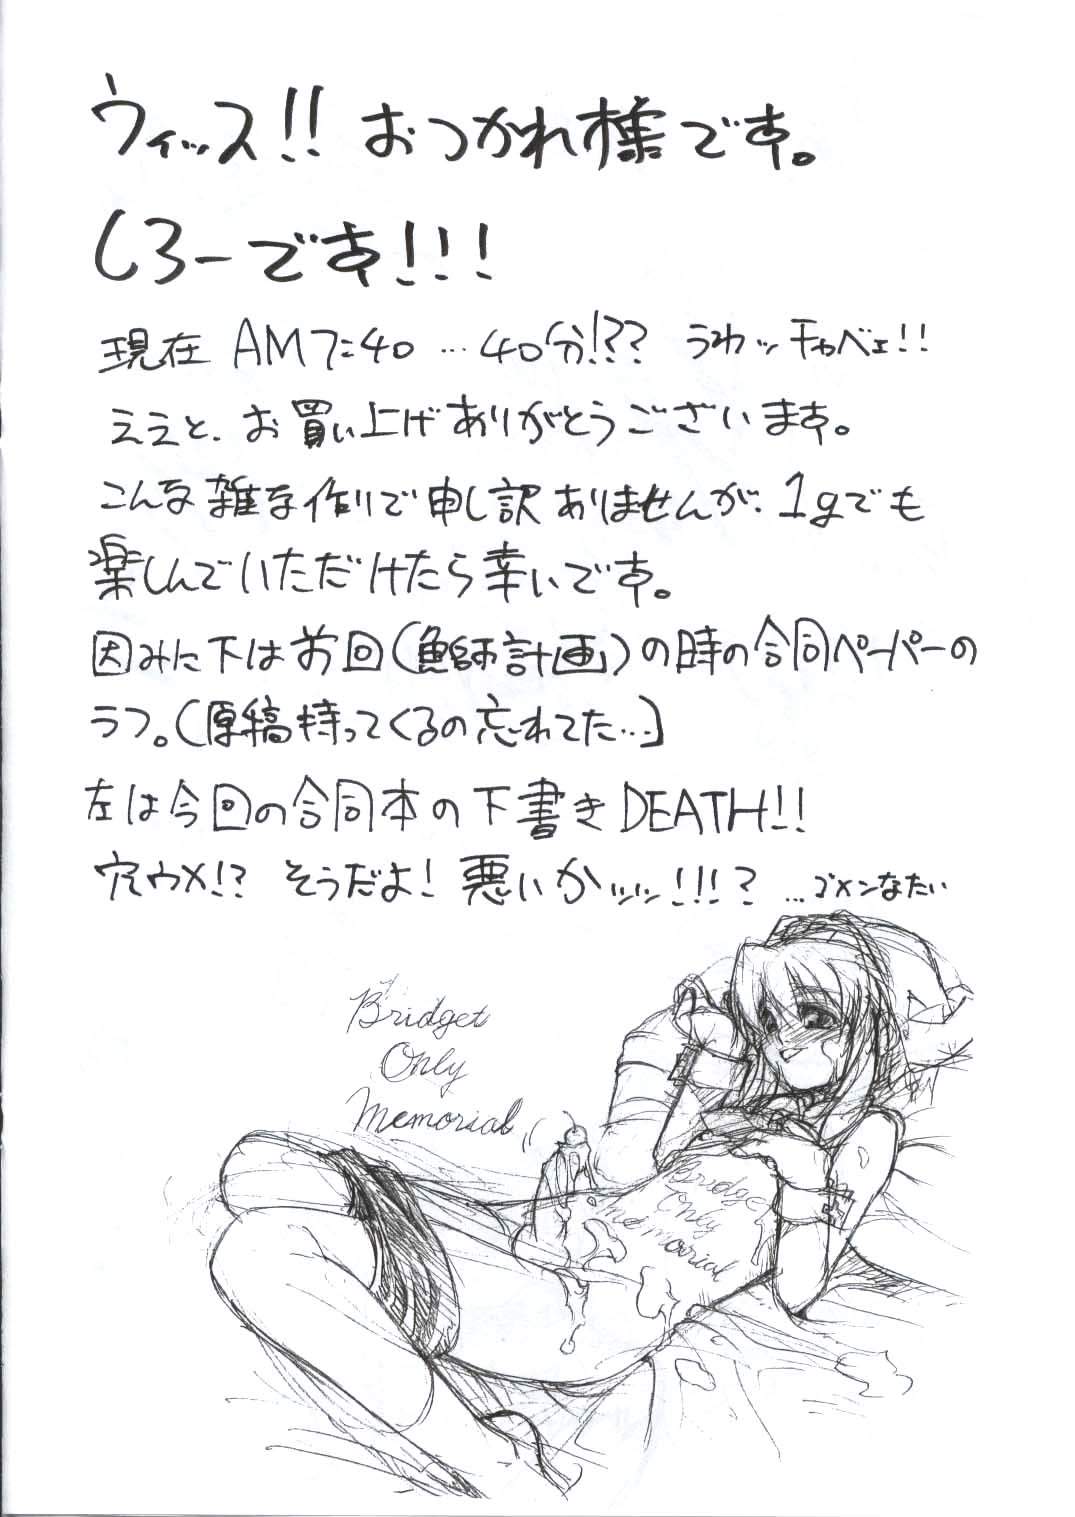 ウィッス!! おつかれ様です。
しろーです!!!
現在 AM7:40 …40分!?? うわッチャベェ!!
ええと、お買い上げありがとうございます。
こんな雑な作りで申し訳ありませんが、1gでも
楽しんでいただけたら幸いです。
因みに下は前回(鮊計画)の時の合同ペーパーの
ラフ。(原稿持ってくるの忘れてた…)
左は今回の合同本の下書きDEATH!!
穴ウメ!? そうだよ! 悪いかッッッ!!!? …ゴメンなたい
Bridget
Only
Memorial
Bridget
Only
Memorial